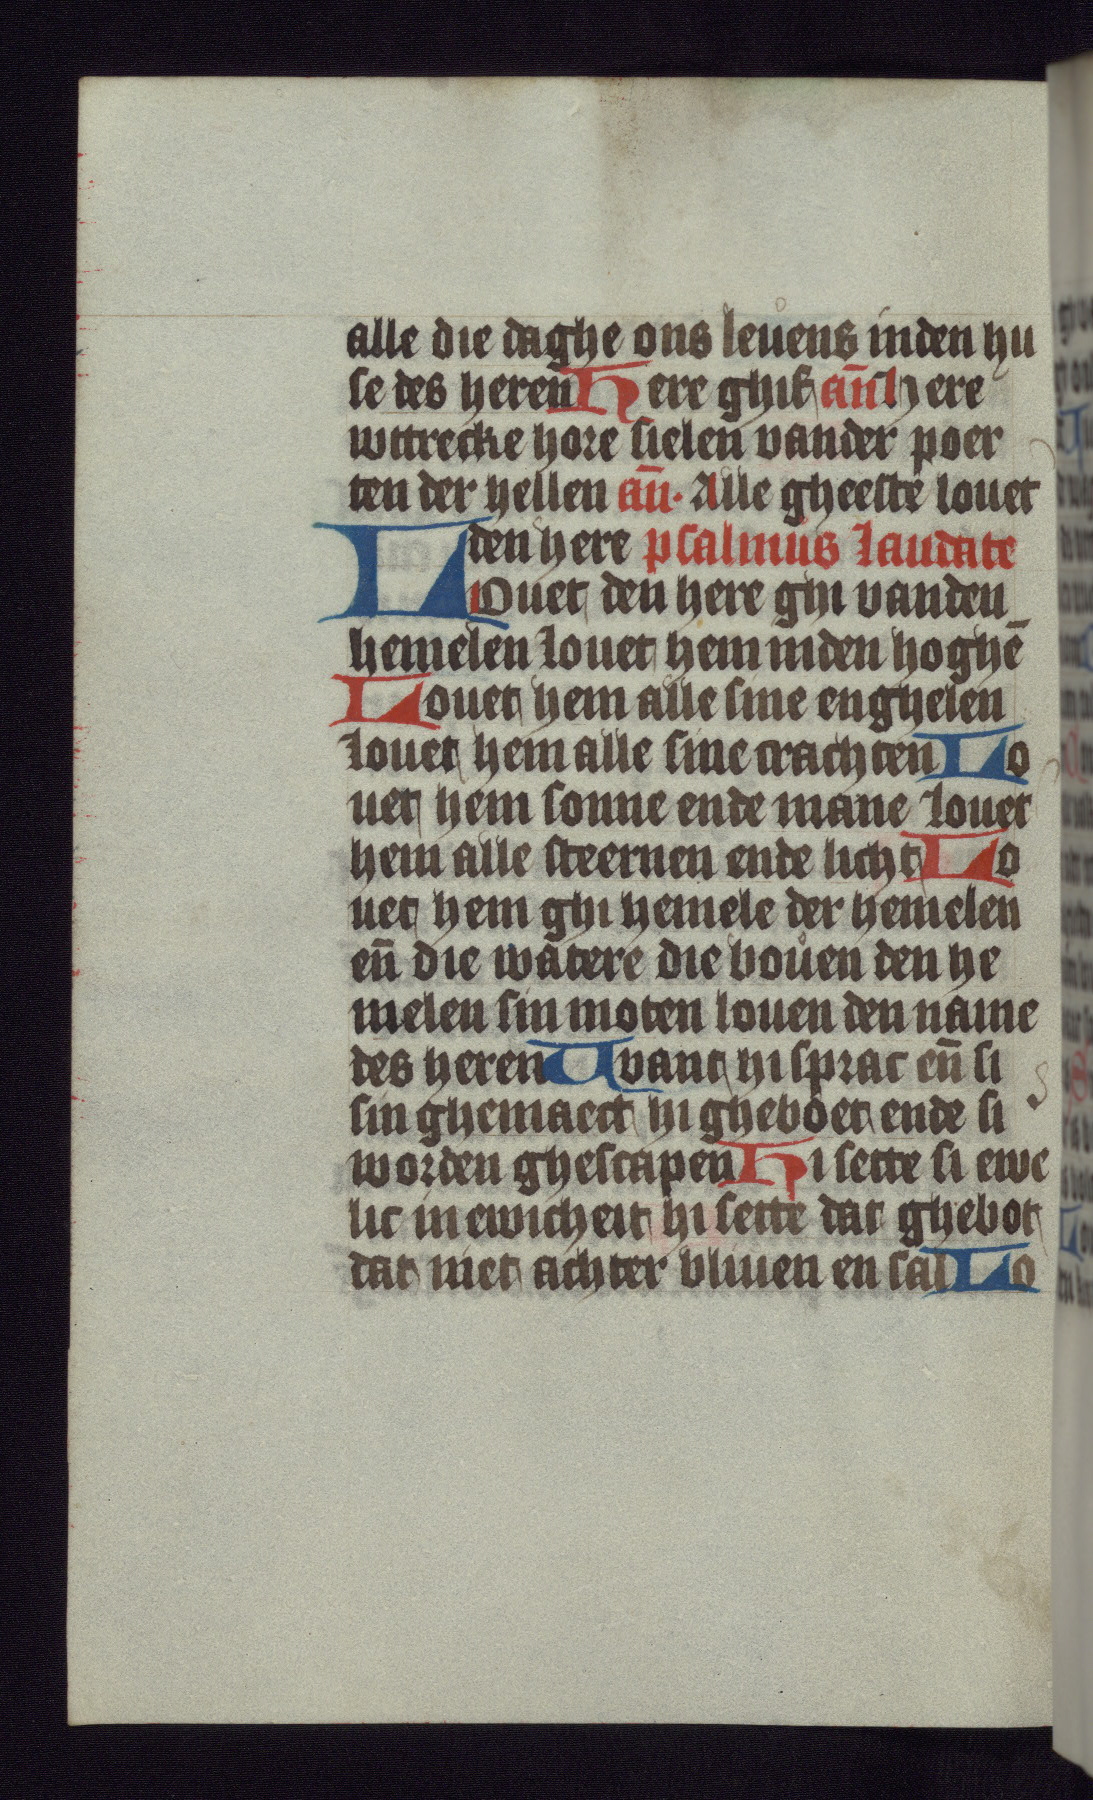 alle die daghe ons leuens inden hu
se des heren Here ghif an̄ here
wttrecke hore sielen vander poer
ten der hellen an̄. Alle gheeste louet
den here psalmus laudate
LOuet den here ghi vanden
hemelen louet hem inden hoghē
Louet hem alle sine enghelen
louet hem alle sine crachten Lo
uet hem sonne ende mane louet
hem alle steernen ende licht Lo
uet hem ghi hemele der hemelen
en̄ die watere die bouen den he
melen sin moten louen den name
des heren Want hi sprac en̄ si
sin ghemaect hi gheboet ende si
worden ghescapen Hi sette si ewe
lic in ewicheit hi sette dat ghebot
dat niet achter bliuen en sal Lo